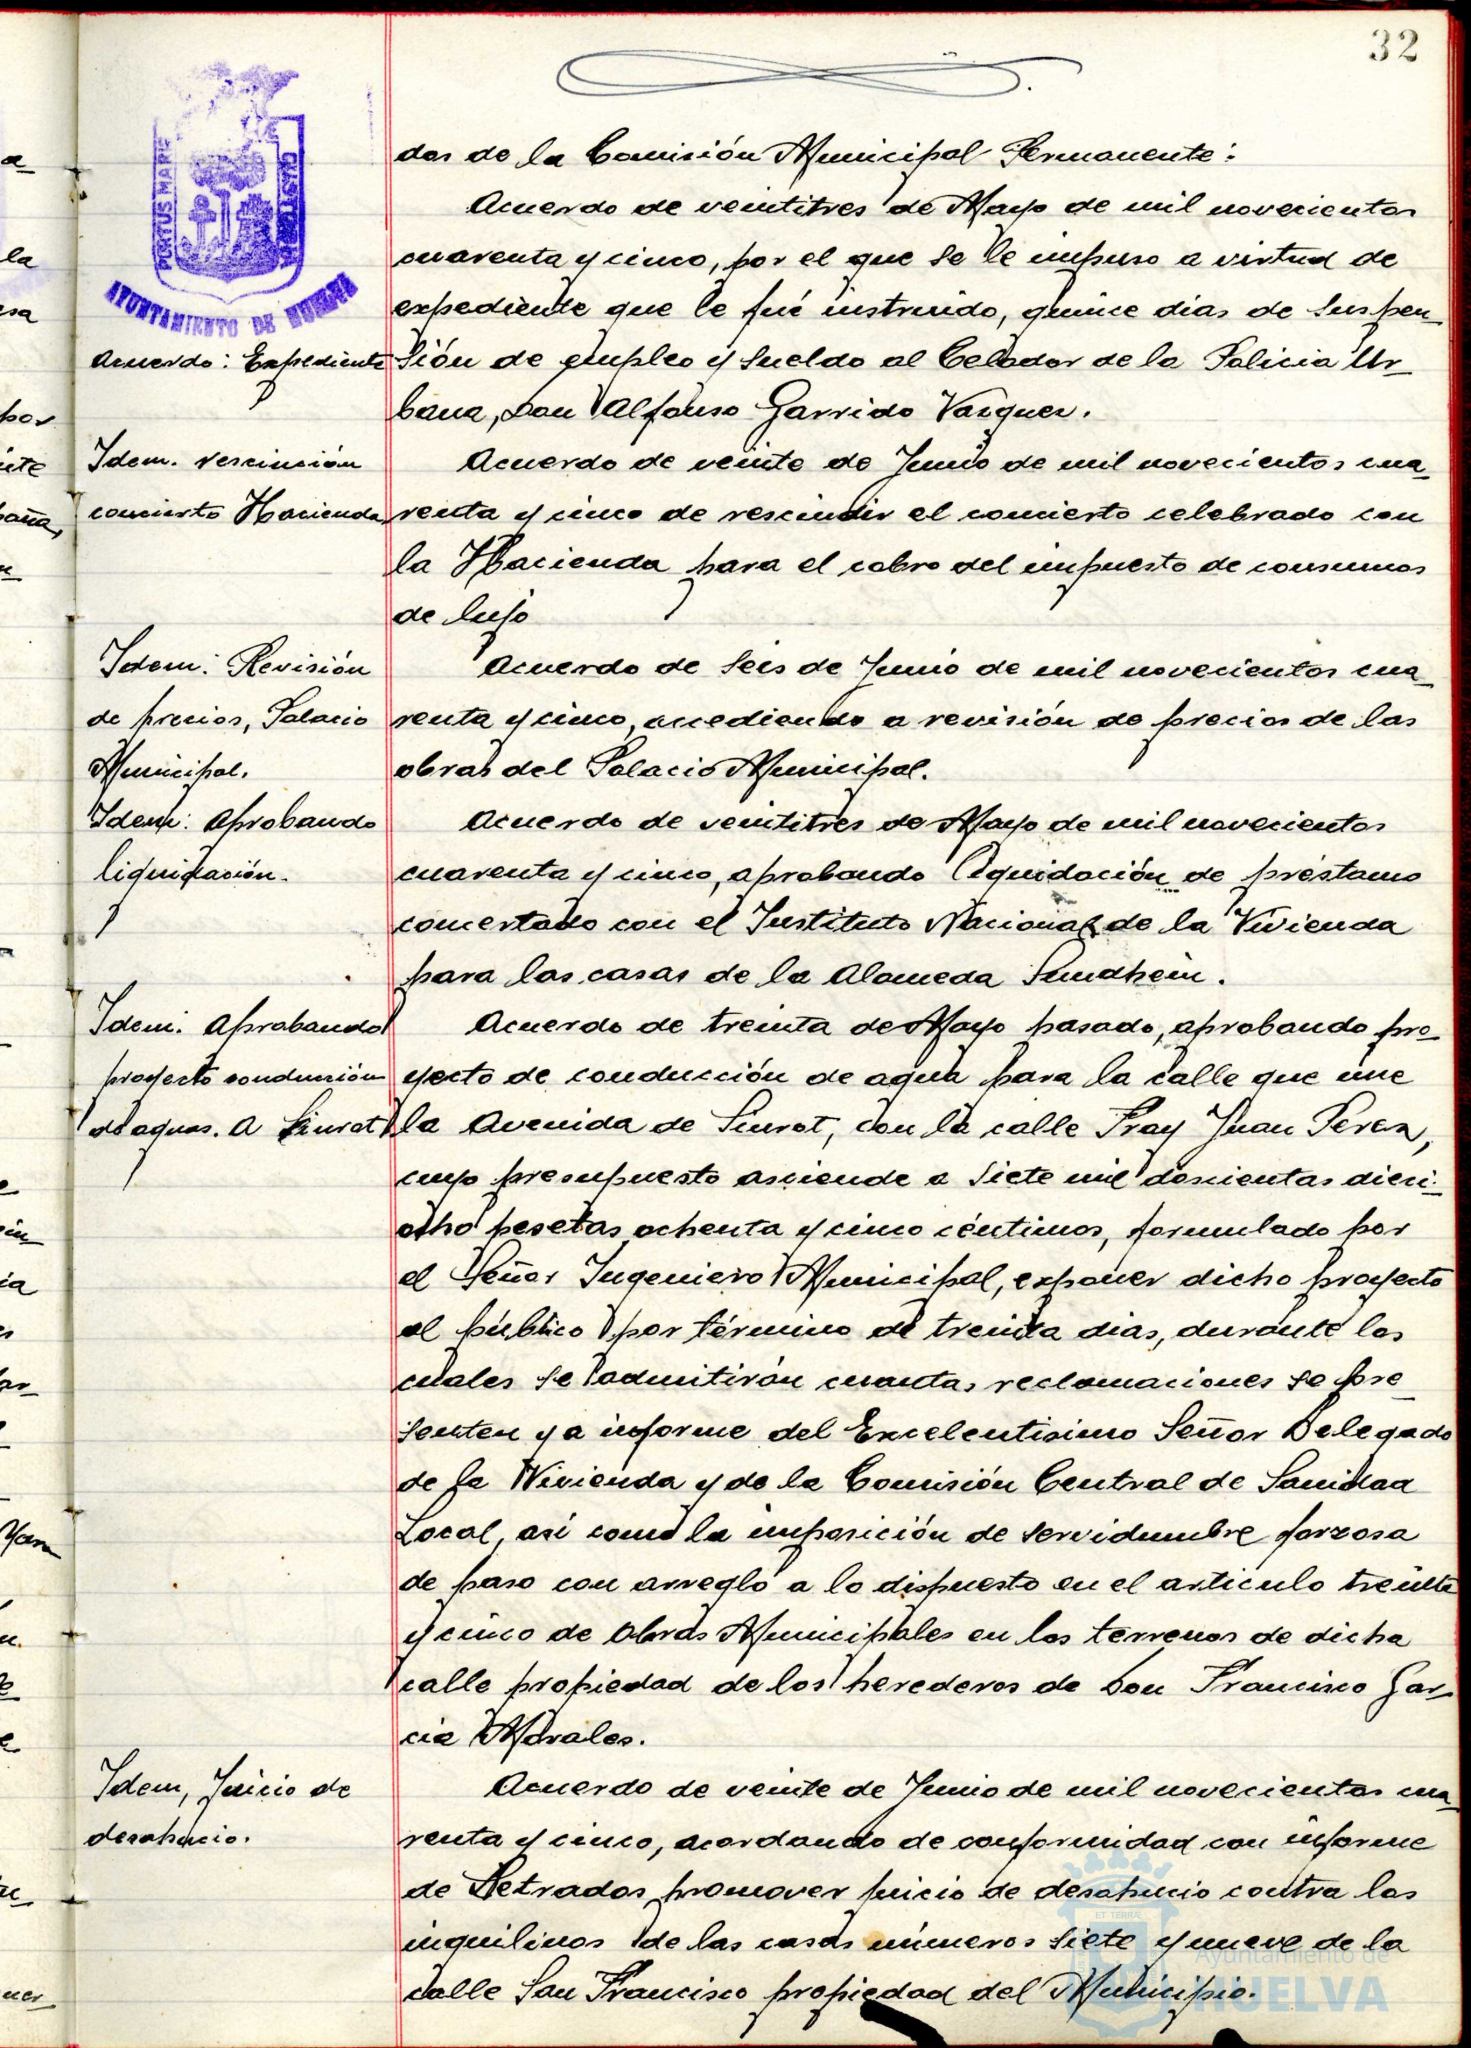 32
PORTUS MARIS
AYUNTAMIENTO DE HUELVA
dos de la Comisión Municipal Permanente:
Acuerdo de veintitres de Mayo de mil novecientos
cuarenta y cinco, por el que se le impuso a virtud de
expediente que le fué instruido, quince dias de suspen_
Acuerdo: Expediente
sión de empleo y sueldo al Celador de la Policia Ur_
bana, Don Alfonso Garrido Vazquez.
Idem. rescinsión
Acuerdo de veinte de Junio de mil novecientos cua_
concierto Hacienda
renta y cinco de rescindir el concierto celebrado con
la Hacienda para el cobro del impuesto de consumos
de lujo
Idem: Revisión
Acuerdo de seis de Junio de mil novecientos cua_
de precios, Palacio
renta y cinco, accediendo a revisión de precios de las
Municipal.
obras del Palacio Municipal.
Idem: aprobando
Acuerdo de veintitres de Mayo de mil novecientos
liquidación.
cuarenta y cinco, aprobando liquidación de préstamo
concertado con el Instituto Nacional de la Vivienda
para las casas de la Alameda Sundhein.
Idem: aprobando
Acuerdo de treinta de Mayo pasado, aprobando pro_
proyecto conducción
yecto de conducción de agua para la calle que une
de aguas. A Siurot
la Avenida de Siurot, con la calle Fray Juan Perez,
cuyo presupuesto asciende a siete mil doscientas dieci_
ocho pesetas ochenta y cinco céntimos, formulado por
el Señor Ingeniero Municipal, exponer dicho proyecto
al público por término de treinta dias, durante los
cuales se admitirán cuantas reclamaciones se pre_
senten y a informe del Excelentisimo Señor Delegado
de la Vivienda y de la Comisión Central de Sanidad
Local, asi como la imposición de servidumbre forzosa
de paso con arreglo a lo dispuesto en el articulo treinta
y cinco de Obras Municipales en los terrenos de dicha
calle propiedad de los herederos de Don Francisco Gar_
cia Morales.
Idem, Juicio de
Acuerdo de veinte de Junio de mil novecientos cua_
desahucio.
renta y cinco, acordando de conformidad con informe
de Letrados, promover juicio de desahucio contra los
inquilinos de las casas números siete y nueve de la
calle San Francisco propiedad del Municipio.
Ayuntamiento de
HUELVA